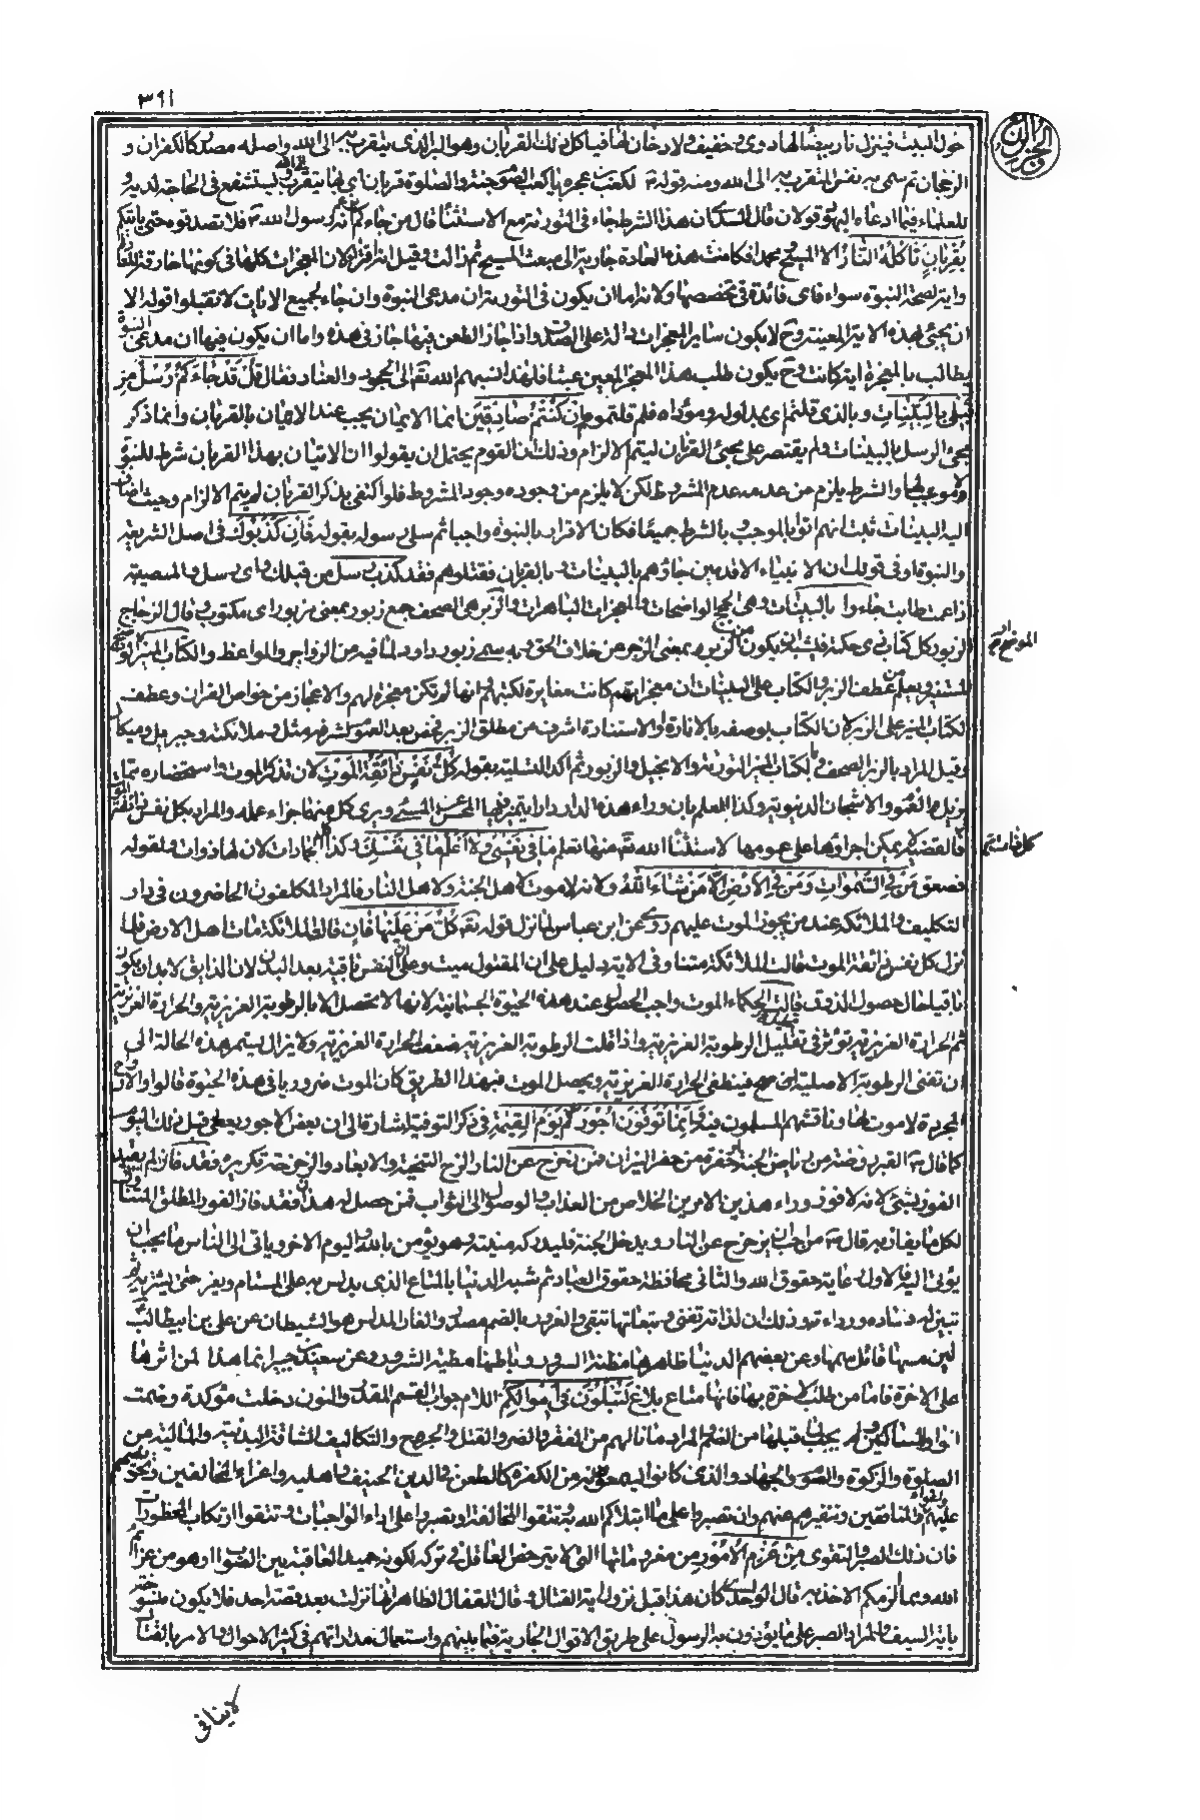 ٣٩١
الجزء الرابع
حول البيت فينزل نار بيضاء لها دوى وخفيف ولا دخان لها فياكل ذلك القربان وهو البر الذى يتقرب به الى الله واصله مصدر كالكفران و
الرجحان ثم سمى به نفس المتقرب به الى الله ومنه قوله لكعب بن عجرة يا كعب الصوم جنة والصلوة قربان اى بها يتقرب الى الله ويستشفع فى الحاجة لديه و
للعلماء فيما ادعاه اليهود قولان قال السدى ان هذا الشرط جاء فى التورية مع الاستثناء قال من جاءكم يزعم انه رسول الله فلا تصدقوه حتى ياتيكم
بقربان تاكله النار الا المسيح ومحمدا فكانت هذه العادة جارية الى مبعث المسيح ثم زالت وقيل انه افتراء لان المعجزات كلها فى كونها خارقة للعادة
واية لصحة النبوة سواء فاى فائدة فى تخصصها ولانه اما ان يكون فى التورية ان مدعى النبوة وان جاء بجميع الايات لا تقبلوا قوله الا
ان يجئ بهذه الاية المعينة وح لا يكون ساير المعجزات دالة على الصدق واذا جاز الطعن فيها جاز فى هذه واما ان يكون فيها ان مدعى النبوة
يطالب بالمعجزة اية كانت وح يكون طلب هذا المعجز المعين عبثا فلهذا نسبهم الله تعالى الى الجحود والعناد فقال قل قد جاءكم رسل من
قبلى بالبينات وبالذى قلتم اى بمدلوله ومؤداه فلم قتلتموهم ان كنتم صادقين انما الايمان يجب عند الاتيان بالقربان وانما ذكر
مجئ الرسل بالبينات ولم يقتصر على مجئ القربان ليتم الالزام وذلك ان القوم يحتمل ان يقولوا ان الاتيان بهذا القربان شرط للنبوة
لا موجب لها والشرط يلزم من عدمه عدم المشروط لكن لا يلزم من وجوده وجود المشروط فلو اكتفى بذكر القربان لم يتم الالزام وحيث اضاف
اليه البينات ثبت انهم اتوا بالموجب وبالشرط جميعا فكان الاقرار بالنبوة واجبا ثم سلى رسوله بقوله فان كذبوك فى اصل الشريعة
والنبوة او فى قولك ان الانبياء الاقدمين جاؤهم بالبينات وبالقربان فقتلوهم فقد كذب رسل من قبلك واى رسل والمصيبة
اذا عمت طابت جاءوا بالبينات وهى الحجج الواضحات والمعجزات الباهرات والزبر هى الصحف جمع زبور بمعنى مزبور اى مكتوب وقال الزجاج
الزبور كل كتاب ذى حكمة فيشبه ان يكون من الزبر بمعنى الزجر عن خلاف الحق وبه سمى زبور داود لما فيه من الزواجر والمواعظ والكتاب المنير الموضح
المستنير ويعلم من عطف الزبر والكتاب على البينات ان معجزاتهم كانت مغايرة لكتبهم وانها لم تكن معجزة لهم والاعجاز من خواص القران وعطف
الكتاب المنير على الزبر لان الكتاب بوصفه بالانارة والاستنارة اشرف من مطلق الزبر فخص بعد العموم لشرفه مثل وملائكته وجبريل وميكال
وقيل المراد بالزبر الصحف وبالكتاب المنير التورية والانجيل والزبور ثم اكد التسلية بقوله كل نفس ذائقة الموت لان تذكر الموت واستحضاره مما
يزيل الغموم والاشجان الدنيوية وكذا العلم بان وراء هذه الدار دارا يتميز فيها المحسن عن المسئ ويرى كل منهما جزاء عمله والمراد بكل نفس ذائقة الموت
فالقضية لا يمكن اجراؤها على عمومها لاستثناء الله تعالى منها تعلم ما فى نفسى ولا اعلم ما فى نفسك وكذا الجمادات لان لها ذوات ولقوله
فصعق من فى السموات ومن فى الارض الا من شاء الله ولانه لا موت لاهل الجنة ولا لاهل النار فالمراد المكلفون الحاضرون فى دار
التكليف والملائكة عند من يجوز الموت عليهم روى عن ابن عباس لما نزل قوله تعالى كل من عليها فان قالت الملائكة مات اهل الارض فلما
نزل كل نفس ذائقة الموت قالت الملائكة متنا وفى الاية دليل على ان المقتول ميت وعلى ان النفس باقية بعد البدن لان الذايق لا بد ان يكون
باقيا حال حصول المذوق قالت الحكماء الموت واجب الحصول عند هذه الحيوة الجسمانية لانها لا تحصل الا بالرطوبة الغريزية والحرارة الغريزية
ثم الحرارة الغريزية تؤثر فى تقليل الرطوبة الغريزية واذا قلت الرطوبة الغريزية ضعفت الحرارة الغريزية ولا يزال يستمر هذه الحالة الى
ان تفنى الرطوبة الاصلية فينطفى الحرارة الغريزية ويحصل الموت فبهذا الطريق كان الموت ضروريا فى هذه الحيوة قالوا والارواح
المجردة لا موت لها وناقشهم المسلمون فيه وانما توفون اجوركم يوم القيمة فى ذكر التوفية اشارة الى ان بعض الاجور يعطى قبل ذلك اليوم
كما قال القبر روضة من رياض الجنة او حفرة من حفر النيران فمن زحزح عن النار الزح التنحية والابعاد والزحزحة تكريره فقد فاز لم يقيد
الفوز بشئ لانه لا فوز وراء هذين الامرين الخلاص من العذاب والوصول الى الثواب فمن حصل له هذان فقد فاز الفوز المطلق المتناول
لكل ما يفاز به قال من احب ان يزحزح عن النار ويدخل الجنة فليدركه منيته وهو يؤمن بالله واليوم الاخر وياتى الى الناس ما يحب ان
يؤتى اليه فالاول رعاية حقوق الله والثانى محافظة حقوق العباد ثم شبه الدنيا بالمتاع الذى يدلس به على المستام ويغر حتى يشتريه ثم
تبين له فساده ورداءته وذلك ان لذاته تفنى وتبعاتها تبقى والغرور بالضم مصدر والغار المدلس هو الشيطان عن على بن ابيطالب
لين مسها قاتل سمها وعن بعضهم الدنيا ظاهرها مظنة السرور وباطنها مطية الشرور وعن سعيد بن جبير انما هذا لمن اثرها
على الاخرة فاما من طلب الاخرة بها فانها متاع بلاغ لتبلون فى اموالكم اللام جواب القسم المقدر والنون دخلت مؤكدة وضمت
الواو للساكنين ولم يجب قبلها من الضم والمراد ما نالهم من الفقر والضر والقتل والجرح والتكاليف الشاقة البدنية والمالية من
الصلوة والزكوة والصوم والجهاد والذى كانوا يسمعونه من الكفرة كالطعن فى الدين الحنيف واهليه واغراء المخالفين وتحريضهم
عليهم والمنافقين وتنفيرهم عنهم وان تصبروا على ما ابتلاكم الله به وتتقوا المخالفة او تصبروا على اداء الواجبات وتتقوا ارتكاب المحظورات
فان ذلك الصبر والتقوى من عزم الامور من معزوماتها التى لا يترخص العاقل فى تركه لكونه حميد العاقبة بين الصواب او هو من عزائم
الله ومما الزمكم الاخذ به قال الواحدى كان هذا قبل نزول اية القتال وقال القفال الظاهر انها نزلت بعد قصة احد فلا يكون منسوخة
باية السيف والمراد الصبر على ما يؤذون به الرسول على طريق الاقوال الجارية فيما بينهم واستعمال مداراتهم فى كثير الاحوال والامر بالقتال
لا ينافى